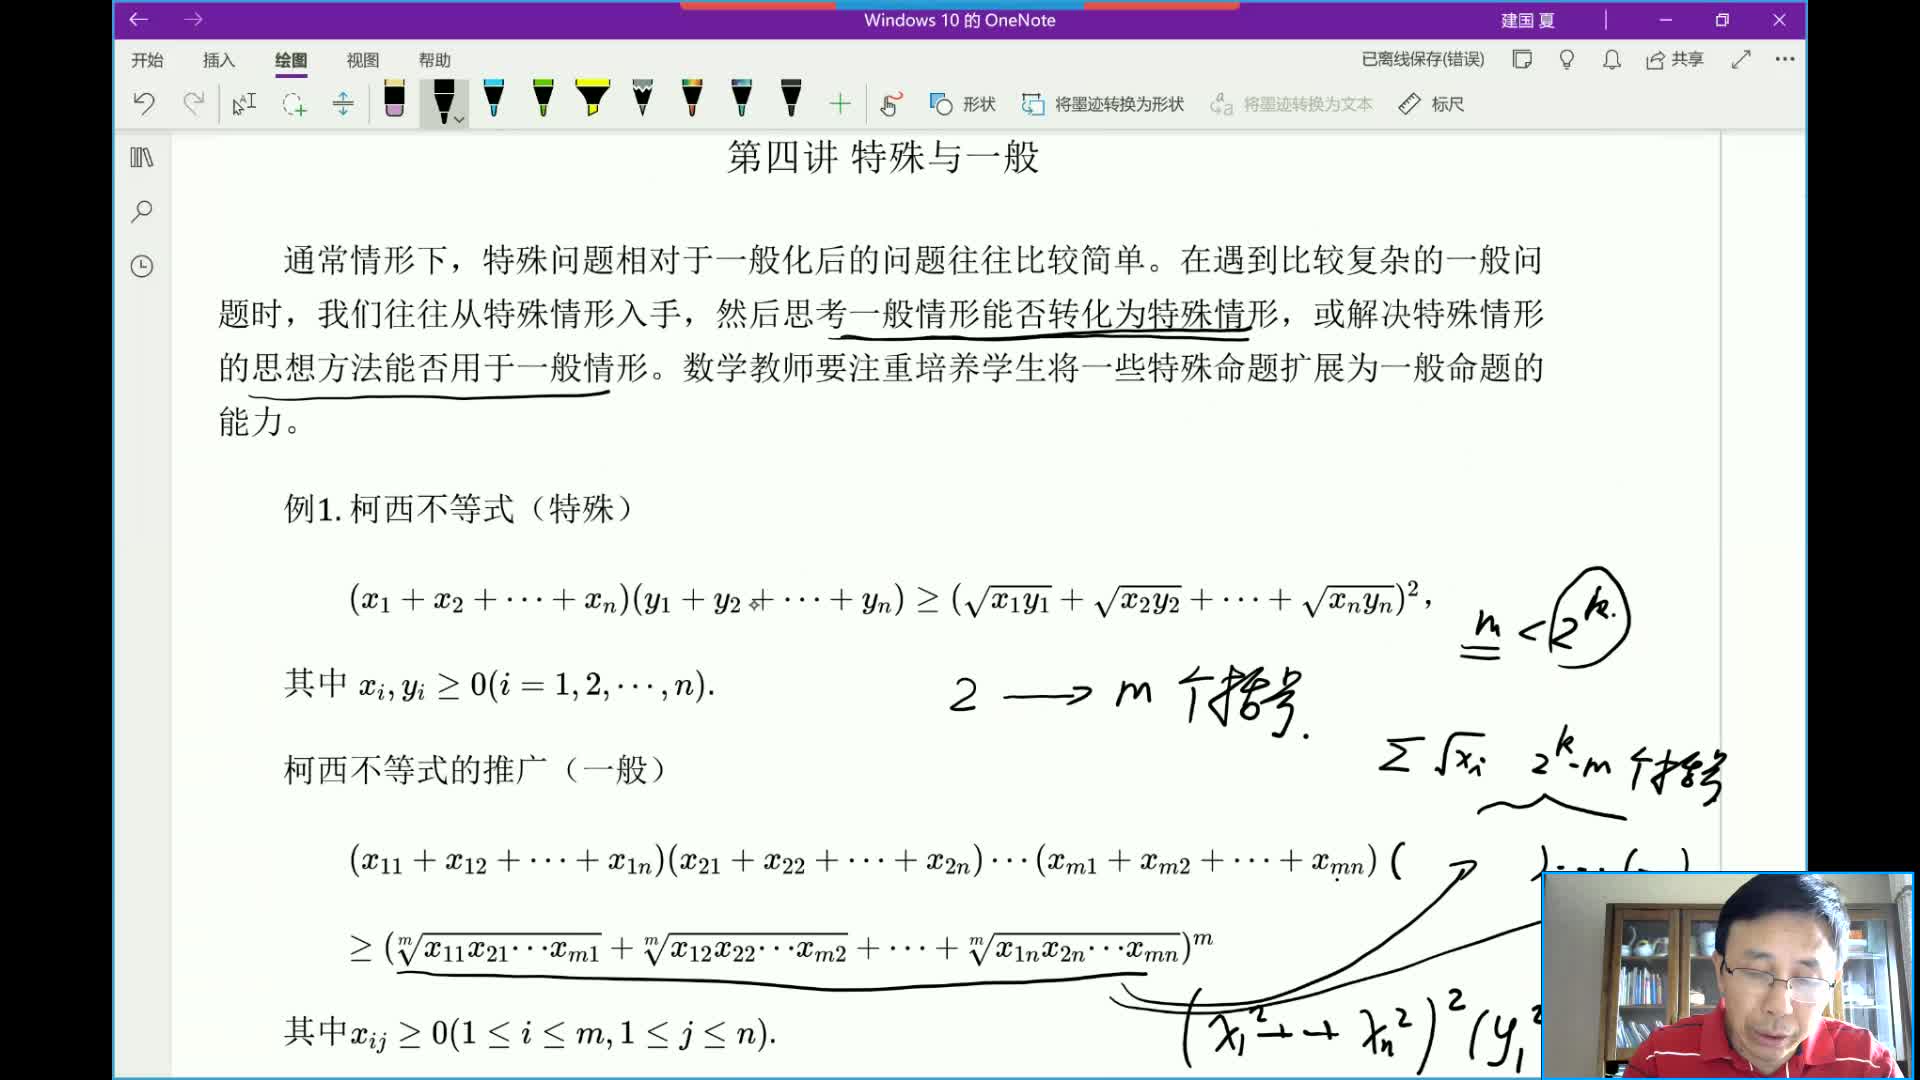 Windows 10 的 OneNote
建国 夏
开始 插入 绘图 视图 帮助
已离线保存(错误)
共享
形状
将墨迹转换为形状
将墨迹转换为文本
标尺
第四讲 特殊与一般
通常情形下，特殊问题相对于一般化后的问题往往比较简单。在遇到比较复杂的一般问
题时，我们往往从特殊情形入手，然后思考一般情形能否转化为特殊情形，或解决特殊情形
的思想方法能否用于一般情形。数学教师要注重培养学生将一些特殊命题扩展为一般命题的
能力。
例1. 柯西不等式（特殊）
(x₁ + x₂ + ⋯ + xₙ)(y₁ + y₂ + ⋯ + yₙ) ≥ (√(x₁y₁) + √(x₂y₂) + ⋯ + √(xₙyₙ))²，
m < 2^k.
其中 xᵢ, yᵢ ≥ 0(i = 1, 2, ⋯, n).
2 → m 个括号.
柯西不等式的推广（一般）
Σ √xᵢ 2^k - m 个括号
(x₁₁ + x₁₂ + ⋯ + x₁ₙ)(x₂₁ + x₂₂ + ⋯ + x₂ₙ) ⋯ (xₘ₁ + xₘ₂ + ⋯ + xₘₙ) ( ) ⋯ ( )
≥ (ᵐ√(x₁₁x₂₁⋯xₘ₁) + ᵐ√(x₁₂x₂₂⋯xₘ₂) + ⋯ + ᵐ√(x₁ₙx₂ₙ⋯xₘₙ))ᵐ
(x₁² + + xₙ²)² (y₁²
其中xᵢⱼ ≥ 0(1 ≤ i ≤ m, 1 ≤ j ≤ n).